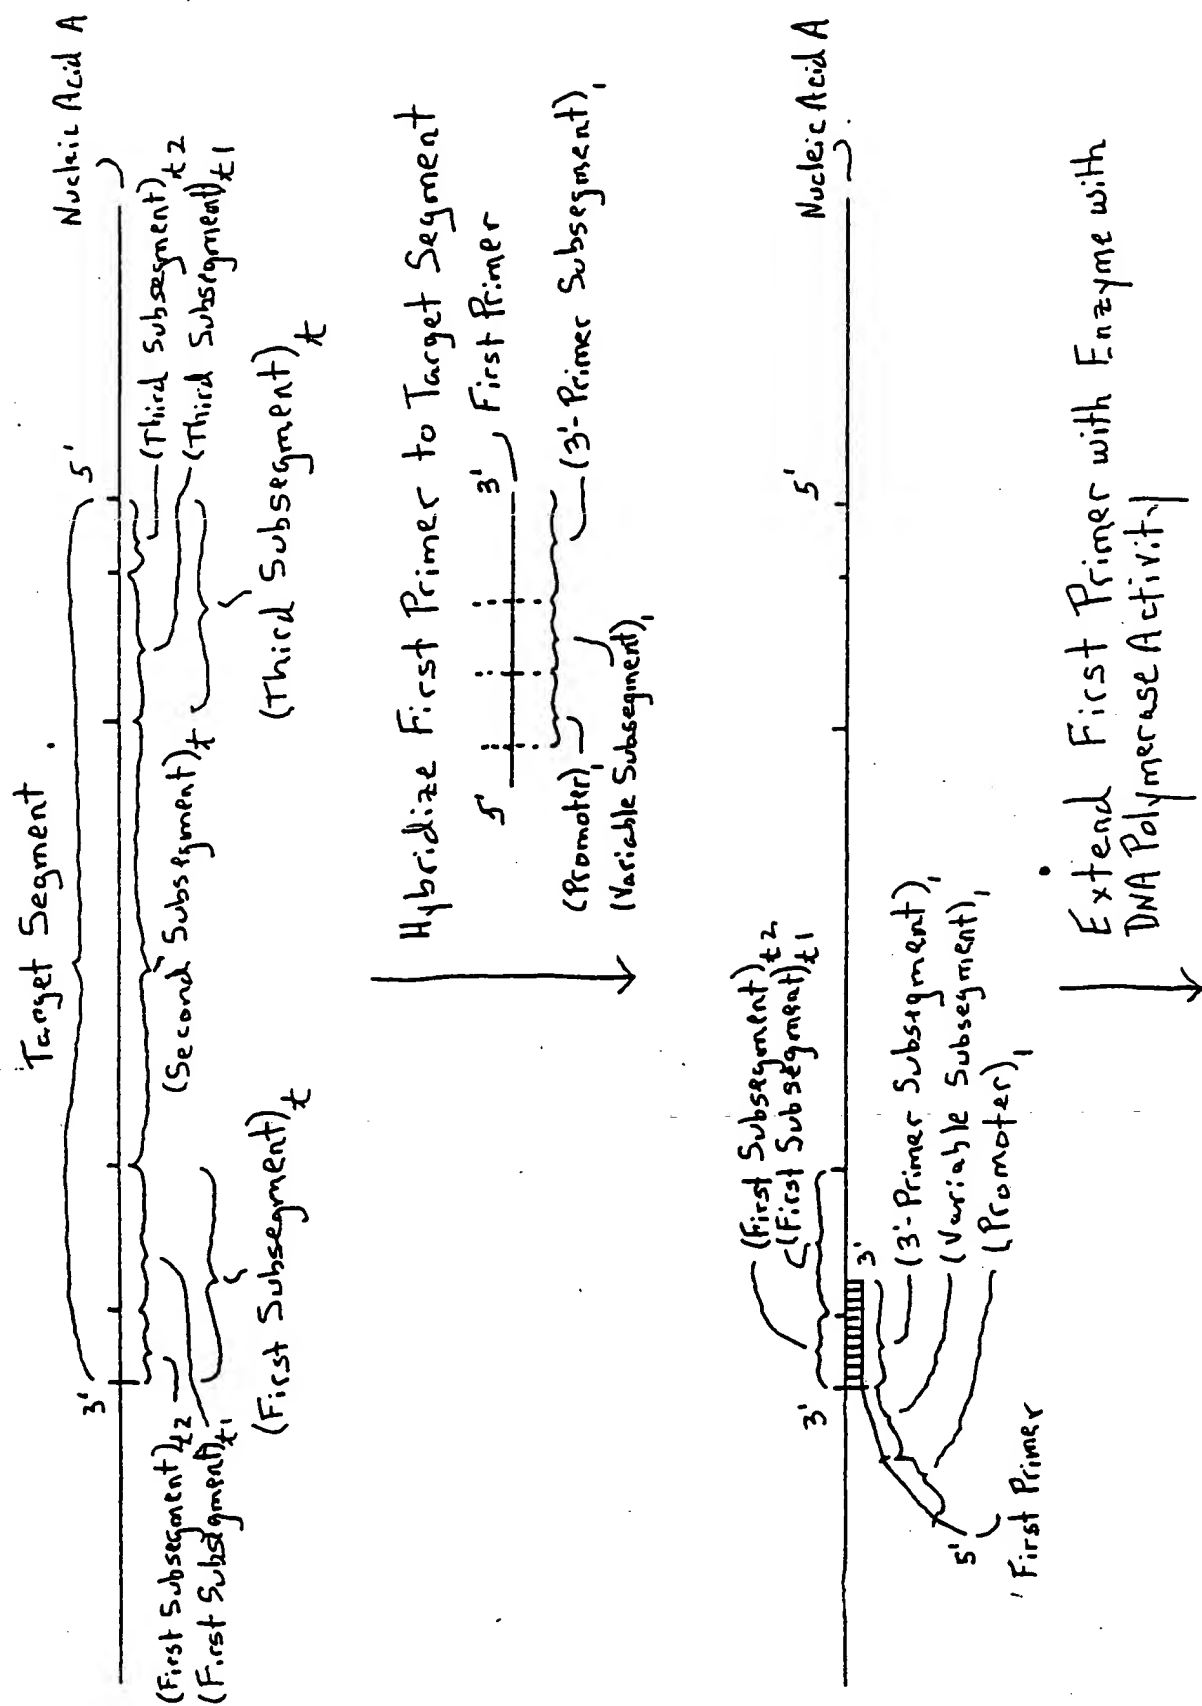 Target Segment
3'
5'
Nucleic Acid A
(First Subsegment)t2
(First Subsegment)t1
(First Subsegment)t
(Second Subsegment)t
(Third Subsegment)t2
(Third Subsegment)t1
(Third Subsegment)t
Hybridize First Primer to Target Segment
5'
3'
First Primer
(Promoter)1
(Variable Subsegment)1
(3'-Primer Subsegment)1
(First Subsegment)t2
(First Subsegment)t1
3'
3'
5'
Nucleic Acid A
(3'-Primer Subsegment)1
(Variable Subsegment)1
(Promoter)1
5'
First Primer
Extend First Primer with Enzyme with
DNA Polymerase Activity